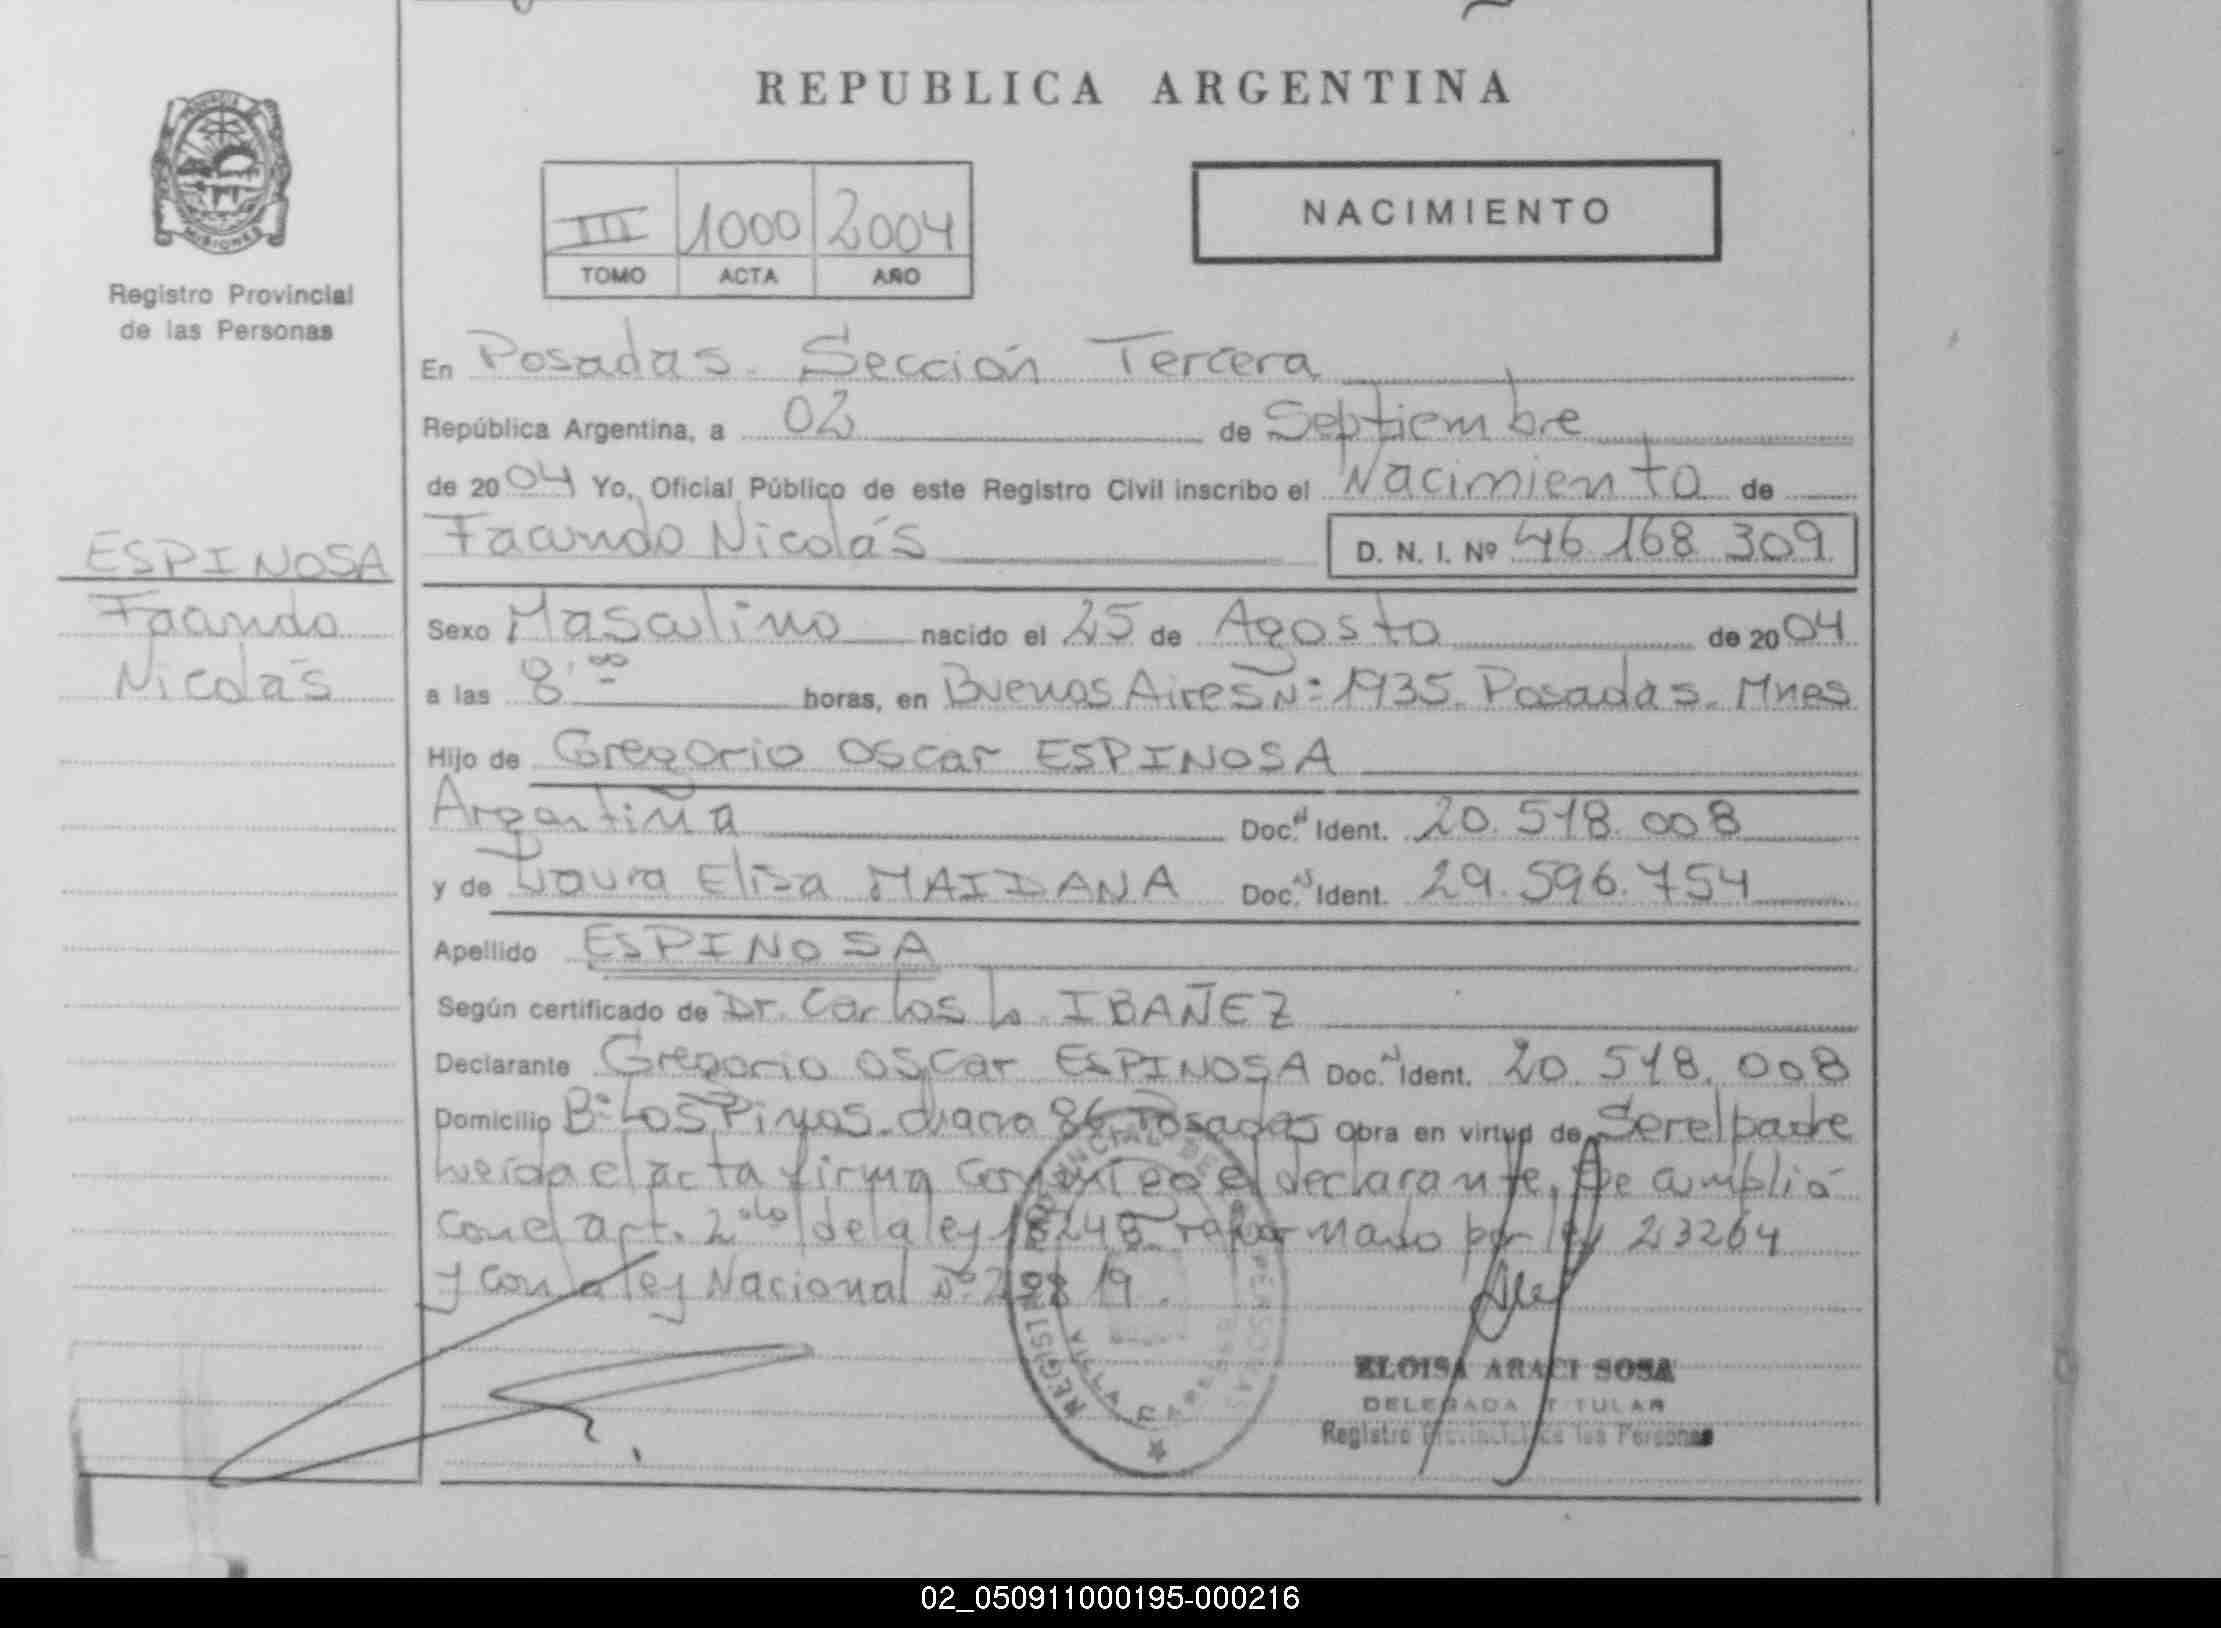 REPUBLICA ARGENTINA
MISIONES
Registro Provincial
de las Personas
III 1000 2004
TOMO ACTA AÑO
NACIMIENTO
En Posadas. Sección Tercera
República Argentina, a 02 de Septiembre
de 2004 Yo, Oficial Público de este Registro Civil inscribo el Nacimiento de
Facundo Nicolás D. N. I. Nº 46 168 309
ESPINOSA
Facundo
Nicolás
Sexo Masculino nacido el 25 de Agosto de 2004
a las 8:00 horas, en Buenos Aires Nº 1935. Posadas. Mnes
Hijo de Gregorio Oscar ESPINOSA
Argentina Doc. Ident. 20.518.008
y de Laura Elisa MAIDANA Doc. Ident. 29.596.754
Apellido ESPINOSA
Según certificado de Dr. Carlos L. IBAÑEZ
Declarante Gregorio Oscar ESPINOSA Doc. Ident. 20.518.008
Domicilio Bº Los Pinos. chacra 86 Posadas Obra en virtud de Ser el padre
leída el acta firma conmigo el declarante. Se cumplió
con el art. 2do de la ley 18248 reformado por ley 23264
y con la ley Nacional Nº
REGISTRO PROVINCIAL DE LAS PERSONAS
VILLA
ELOISA ARACI SOSA
DELEGADA TITULAR
Registro Provincial de las Personas
02_050911000195-000216